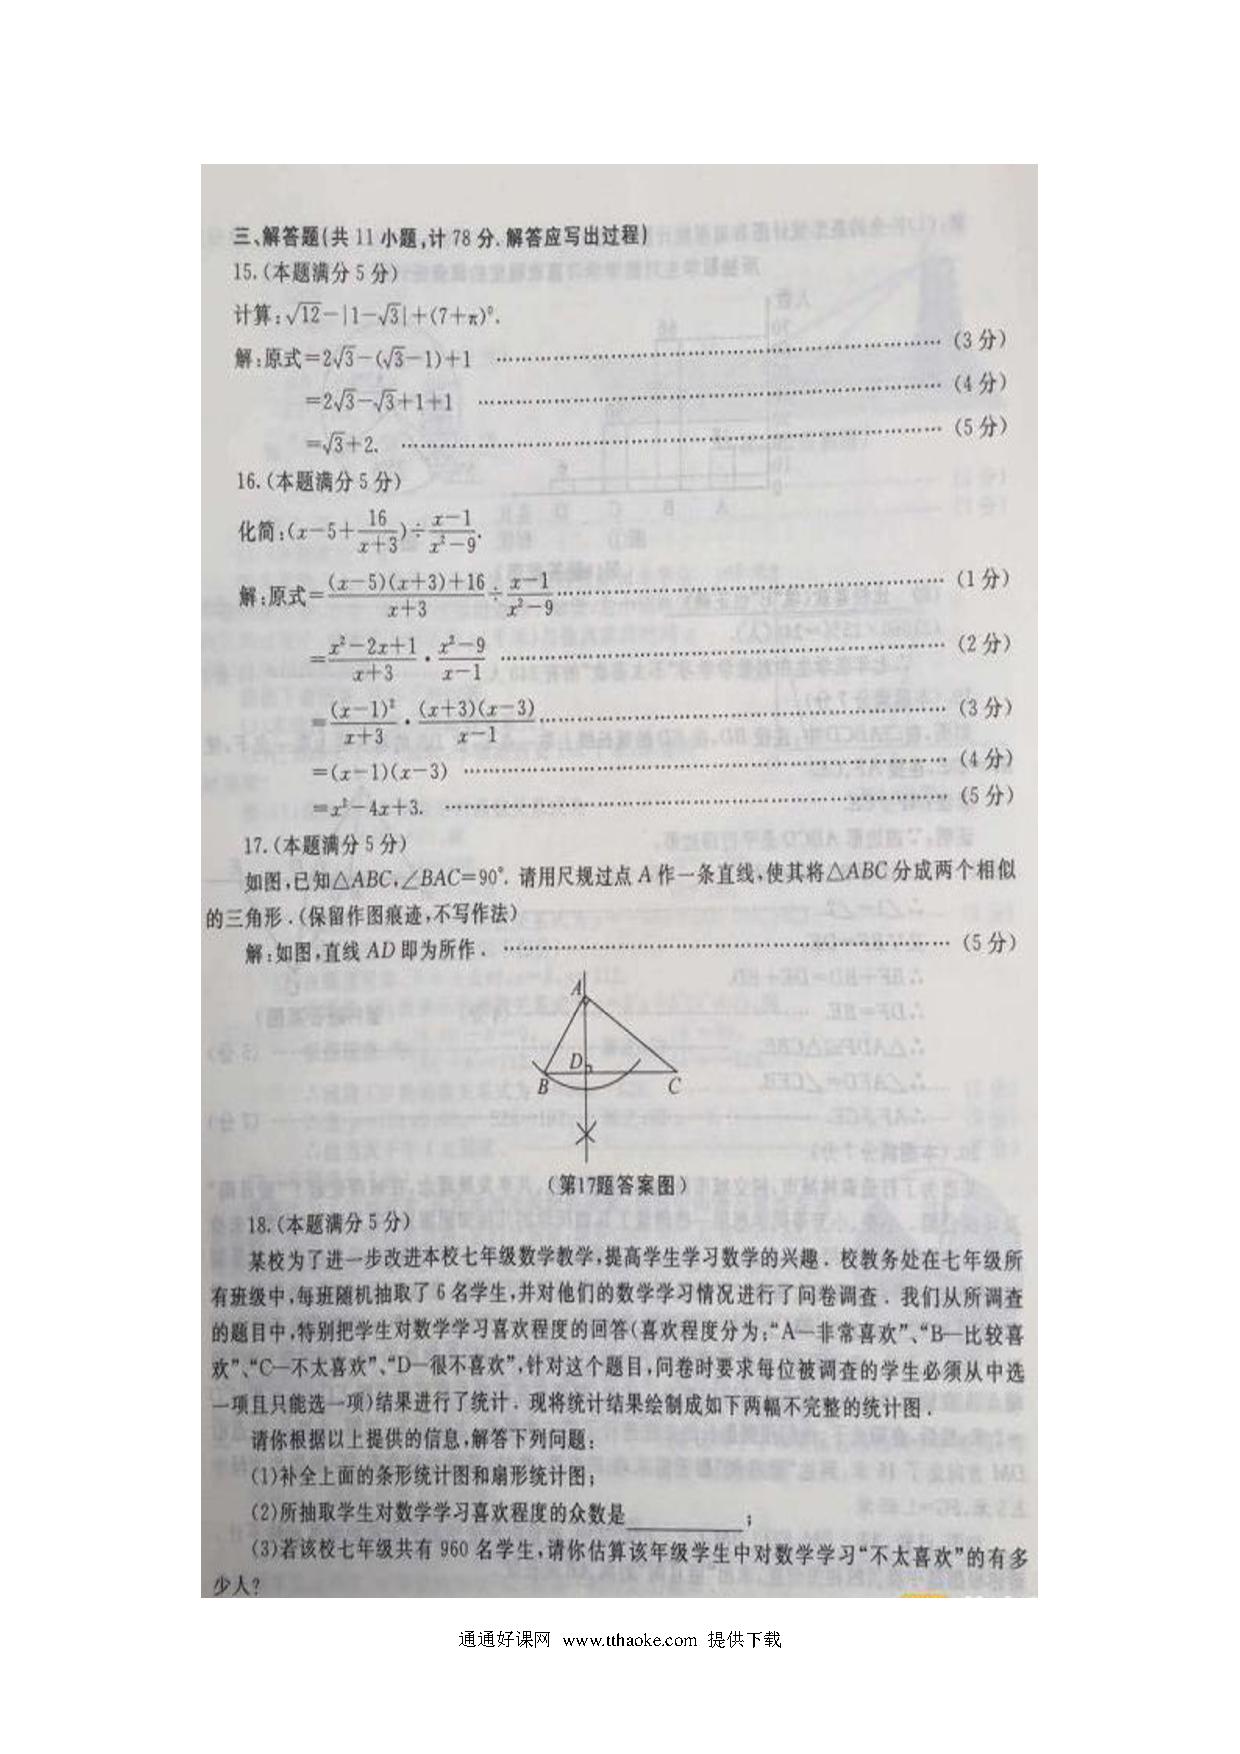 三、解答题(共 11 小题,计 78 分.解答应写出过程)
15.(本题满分 5 分)
计算:√12-|1-√3|+(7+π)⁰.
解:原式=2√3-(√3-1)+1 ……………………(3 分)
=2√3-√3+1+1 ……………………(4 分)
=√3+2. ……………………(5 分)
16.(本题满分 5 分)
化简:(x-5+16/(x+3))÷(x-1)/(x²-9).
解:原式=((x-5)(x+3)+16)/(x+3)÷(x-1)/(x²-9)……………………(1 分)
=(x²-2x+1)/(x+3)·(x²-9)/(x-1) ……………………(2 分)
=(x-1)²/(x+3)·((x+3)(x-3))/(x-1)……………………(3 分)
=(x-1)(x-3) ……………………(4 分)
=x²-4x+3. ……………………(5 分)
17.(本题满分 5 分)
如图,已知△ABC,∠BAC=90°. 请用尺规过点 A 作一条直线,使其将△ABC 分成两个相似
的三角形.(保留作图痕迹,不写作法)
解:如图,直线 AD 即为所作. ……………………(5 分)
A
D
B
C
(第17题答案图)
18.(本题满分 5 分)
某校为了进一步改进本校七年级数学教学,提高学生学习数学的兴趣.校教务处在七年级所
有班级中,每班随机抽取了 6 名学生,并对他们的数学学习情况进行了问卷调查.我们从所调查
的题目中,特别把学生对数学学习喜欢程度的回答(喜欢程度分为:“A—非常喜欢”、“B—比较喜
欢”、“C—不太喜欢”、“D—很不喜欢”,针对这个题目,问卷时要求每位被调查的学生必须从中选
一项且只能选一项)结果进行了统计.现将统计结果绘制成如下两幅不完整的统计图.
请你根据以上提供的信息,解答下列问题:
(1)补全上面的条形统计图和扇形统计图;
(2)所抽取学生对数学学习喜欢程度的众数是__________;
(3)若该校七年级共有 960 名学生,请你估算该年级学生中对数学学习“不太喜欢”的有多
少人?
通通好课网 www.tthaoke.com 提供下载